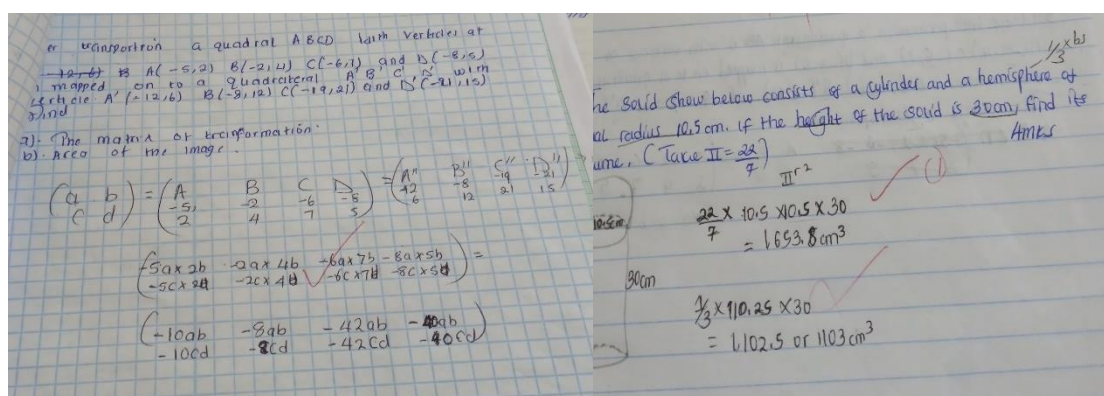 a quadral ABCD with verticles at
A(-5,2) B(-2,4) C(-6,7) and D(-8,5)
mapped on to a quadrilateral A' B' C' D' with
A'(-12,6) B(-8,12) C(-19,21) and D'(-21,15)
find
a). The matrix of tranformation.
b). Area of the image.
(a b) = (A B C D) = (A" B" C" D")
(c d) (-5, -2 -6 -8) (-12 -8 -19 -21)
(2 4 7 5) (6 12 21 15)
(-5a x 2b -2a x 4b -6a x 7b -8a x 5b) =
(-5c x 2d -2c x 4d -6c x 7d -8c x 5d)
(-10ab -8ab -42ab -40ab)
(-10cd -8cd -42cd -40cd)
1/3 x bs
he Solid Show below consists of a cylinder and a hemisphere of
al radius 10.5cm. if the height of the solid is 30cm, find its
ume. (Take II = 22/7) 4mks
IIr²
1
22/7 x 10.5 x 10.5 x 30
= 1,653.8cm³
10.5cm
30cm
1/3 x 110.25 x 30
= 1,102.5 or 1103cm³